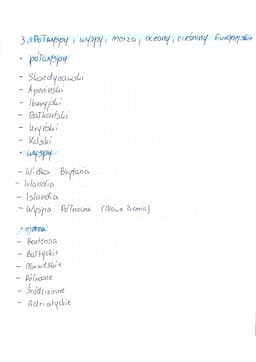 3. Półwyspy, wyspy, morza, oceany, cieśniny Europejskie
• półwyspy
- Skandynawski
- Apeniński
- Iberyjski
- Bałkański
- Krymski
- Kolski
• wyspy
- Wielka Brytania
- Irlandia
- Islandia
- Wyspa Północna (Nowa Ziemia)
• morza
- Barentsa
- Bałtyckie
- Norweskie
- Północne
- Śródziemne
- Adriatyckie